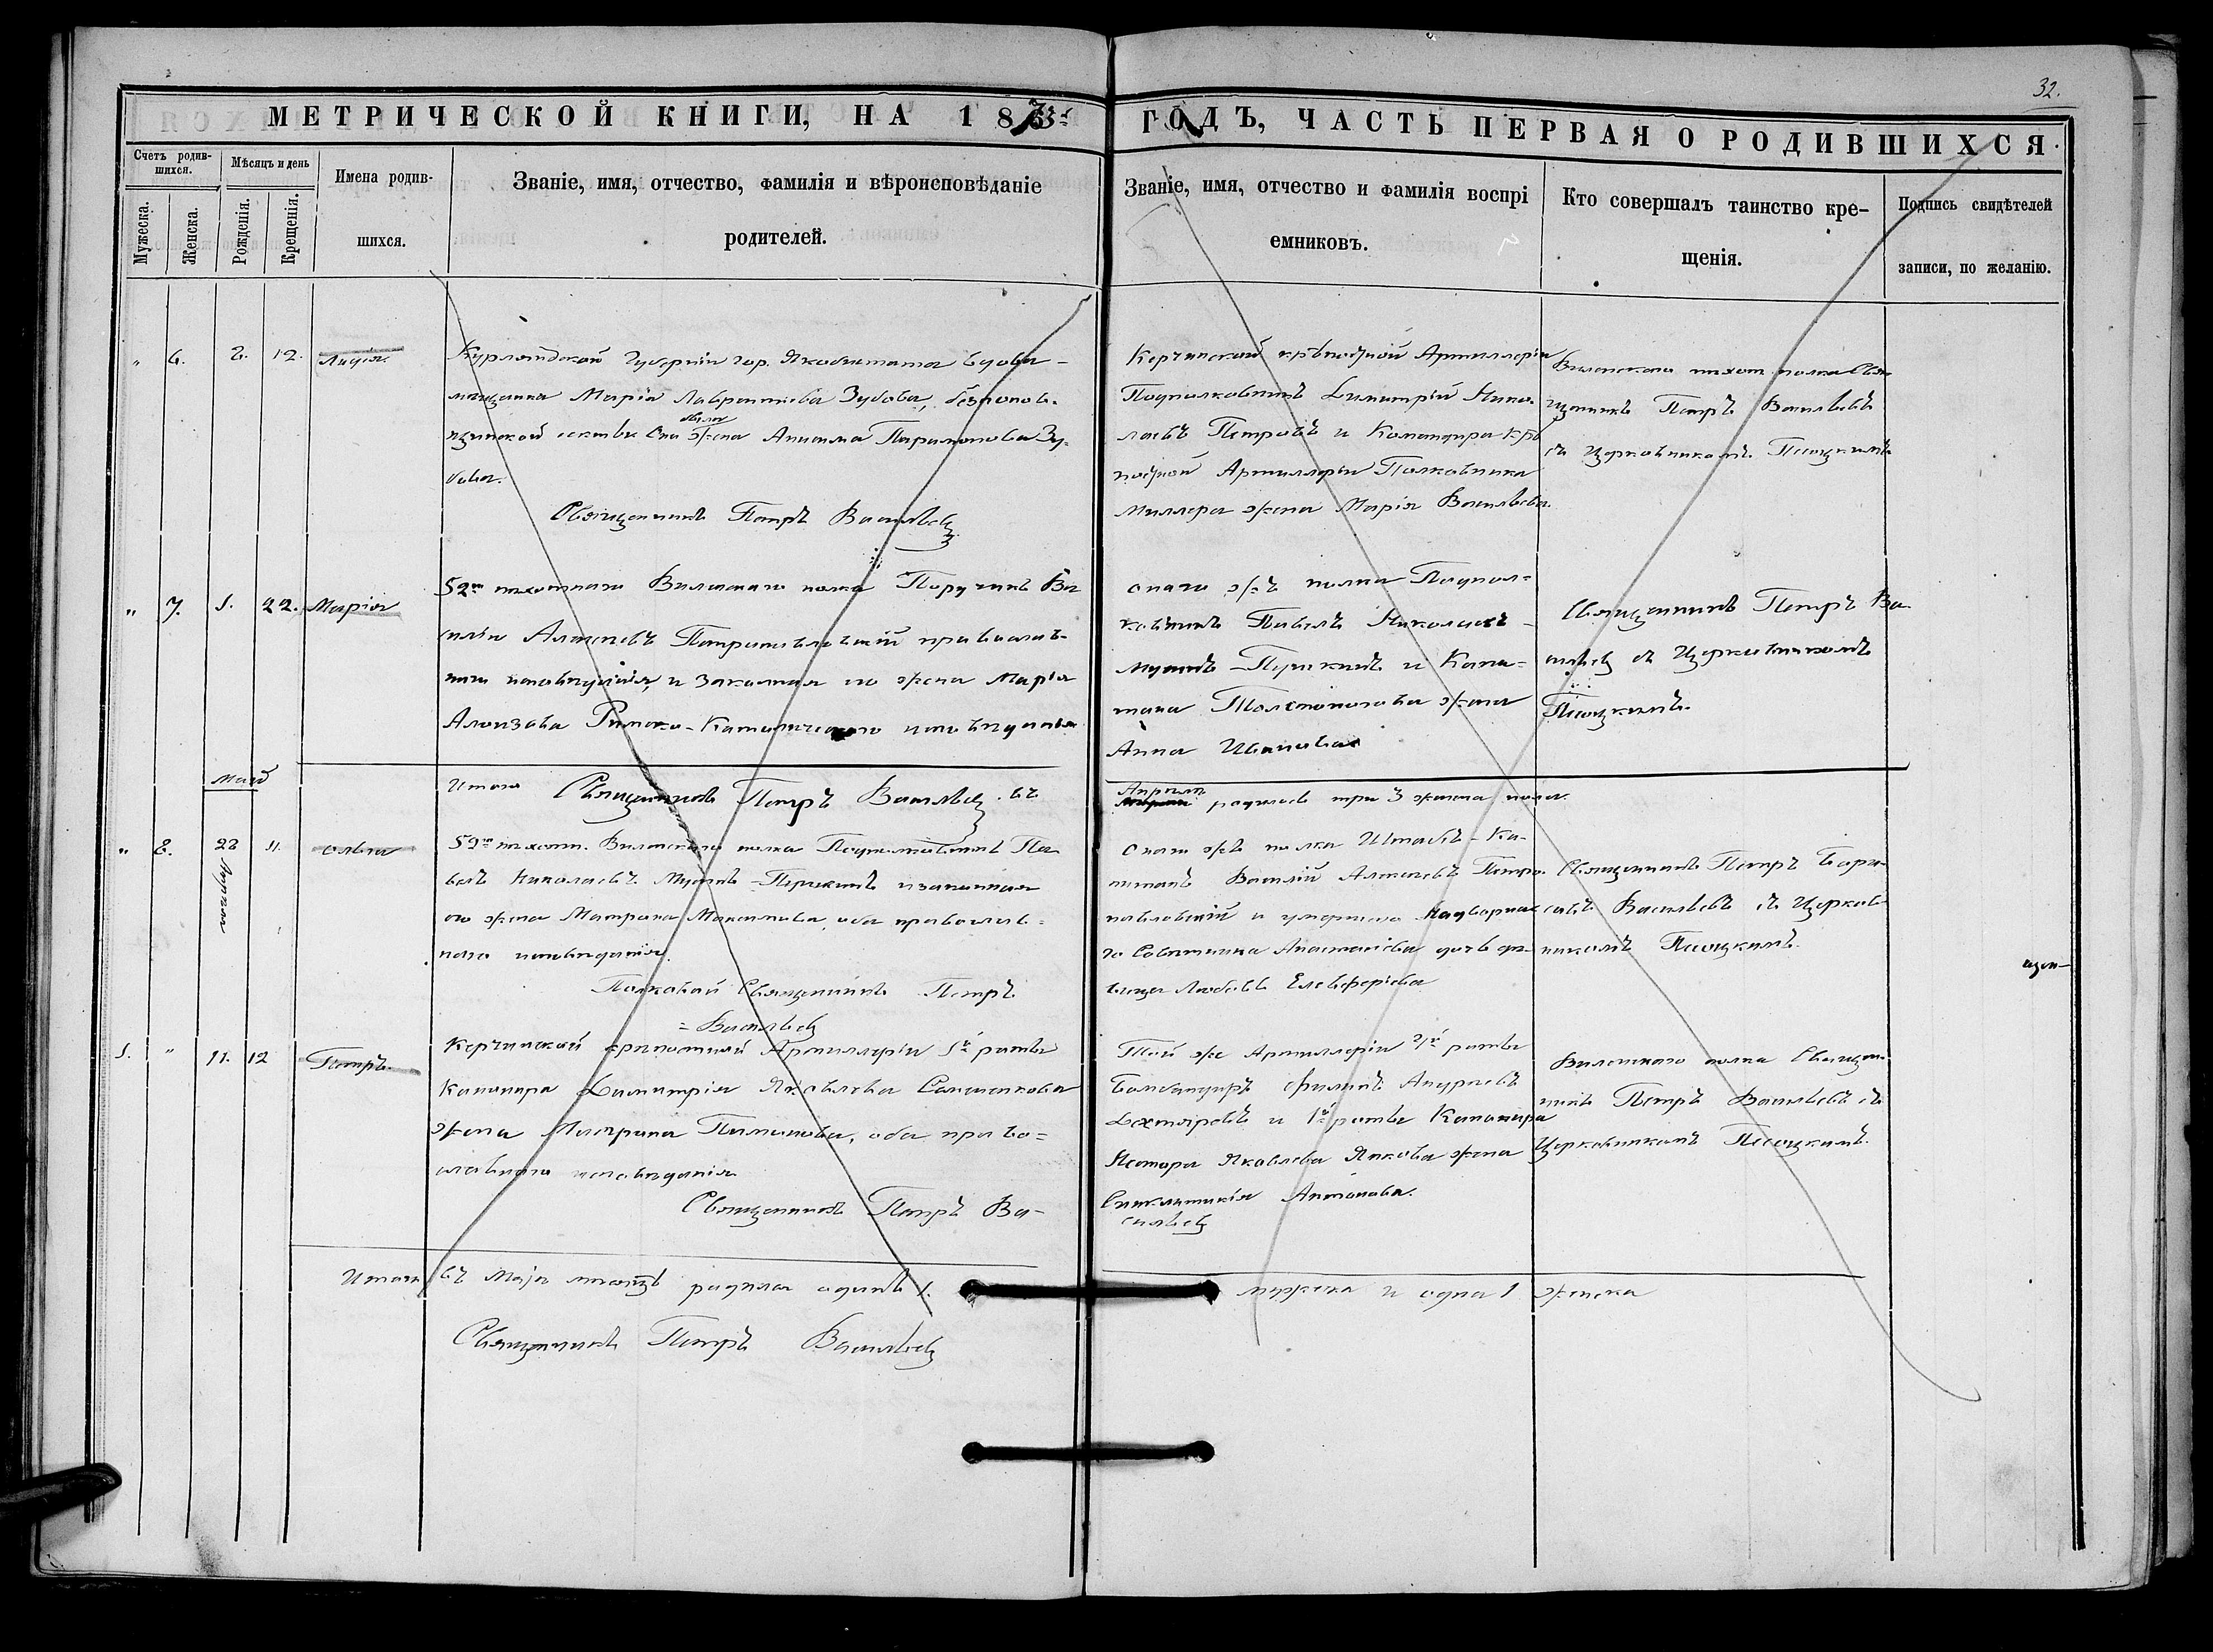 32.
МЕТРИЧЕСКОЙ КНИГИ, НА 1873 ГОДЪ, ЧАСТЬ ПЕРВАЯ О РОДИВШИХСЯ.
Счетъ родив-
шихся.
Мужеска.
Женска.
Мѣсяцъ и день
Рожденія.
Крещенія.
Имена родив-
шихся.
Званіе, имя, отчество, фамилія и вѣроисповѣданіе
родителей.
Званіе, имя, отчество и фамилія воспрі
емниковъ.
Кто совершалъ таинство кре-
щенія.
Подпись свидѣтелей
записи, по желанію.
" 6. 2. 12. Лидія.
Курляндской Губерніи гор. Якобштата вдова -
мѣщанка Марія Лаврентьева Зубова, безпопов-
щинской секты. Она была жена Анисима Парамонова Зу-
бова.
Священникъ Петръ Васильевъ
Керчинской крѣпостной Артиллеріи
Подполковникъ Димитрій Нико-
лаевъ Петровъ и Командира крѣ
постной Артиллеріи Полковника
Миллера жена Марія Васильева.
Виленскаго пѣхот. полка Свя-
щенникъ Петръ Васильевъ
съ Церковникомъ Пѣсоцкимъ
" 7. 1. 22. Марія
52го пѣхотнаго Виленскаго полка Поручикъ Ва
силій Алексѣевъ Петропавловскій православ-
наго исповѣданія, и законная его жена Марія
Алоизова Римско-Католическаго исповѣданія
онаго жъ полка Подпол-
ковникъ Павелъ Николаевъ -
Мусинъ-Пушкинъ и Капи-
тана Толстопогова жена
Анна Иванова
Священникъ Петръ Ва-
сильевъ съ Церковникомъ
Пѣсоцкимъ.
Итого
Священникъ Петръ Васильевъ въ
Апрѣлѣ родилось три 3 женска пола.
Май
" 8. 28 Апрѣля 11. Ольга
52го пѣхотн. Виленскаго полка Подполковникъ Па-
велъ Николаевъ Мусинъ-Пушкинъ и законная
его жена Матрона Максимова, оба православ-
наго исповѣданія.
Полковой Священникъ Петръ
= Васильевъ
онаго жъ полка Штабсъ-Ка-
питанъ Василій Алексѣевъ Петро-
павловскій и умершаго Надворна-
го Совѣтника Анастасіева дочь дѣ-
вица Любовь Елевферіева
Священникъ Петръ Бори-
совъ Васильевъ съ Церков-
никомъ Пѣсоцкимъ.
щен-
1. " 11. 12 Петръ.
Керчинской крѣпостной Артиллеріи 1й роты
Канонира Димитрія Яковлева
жена Матрона Пименова, оба право=
славнаго исповѣданія
Священникъ Петръ Ва-
сильевъ
Той же Артиллеріи 2й роты
Бомбандиръ Филипъ Андреевъ
Дехтяревъ и 1й роты Канонира
Нестора Яковлева Янкова жена
Синклитикія Антонова.
Виленскаго полка Священ-
никъ Петръ Васильевъ съ
Церковникомъ Пѣсоцкимъ.
Итого въ Маѣ мѣсяцѣ родился одинъ 1. мужеска и одна 1 женска
Священникъ Петръ Васильевъ